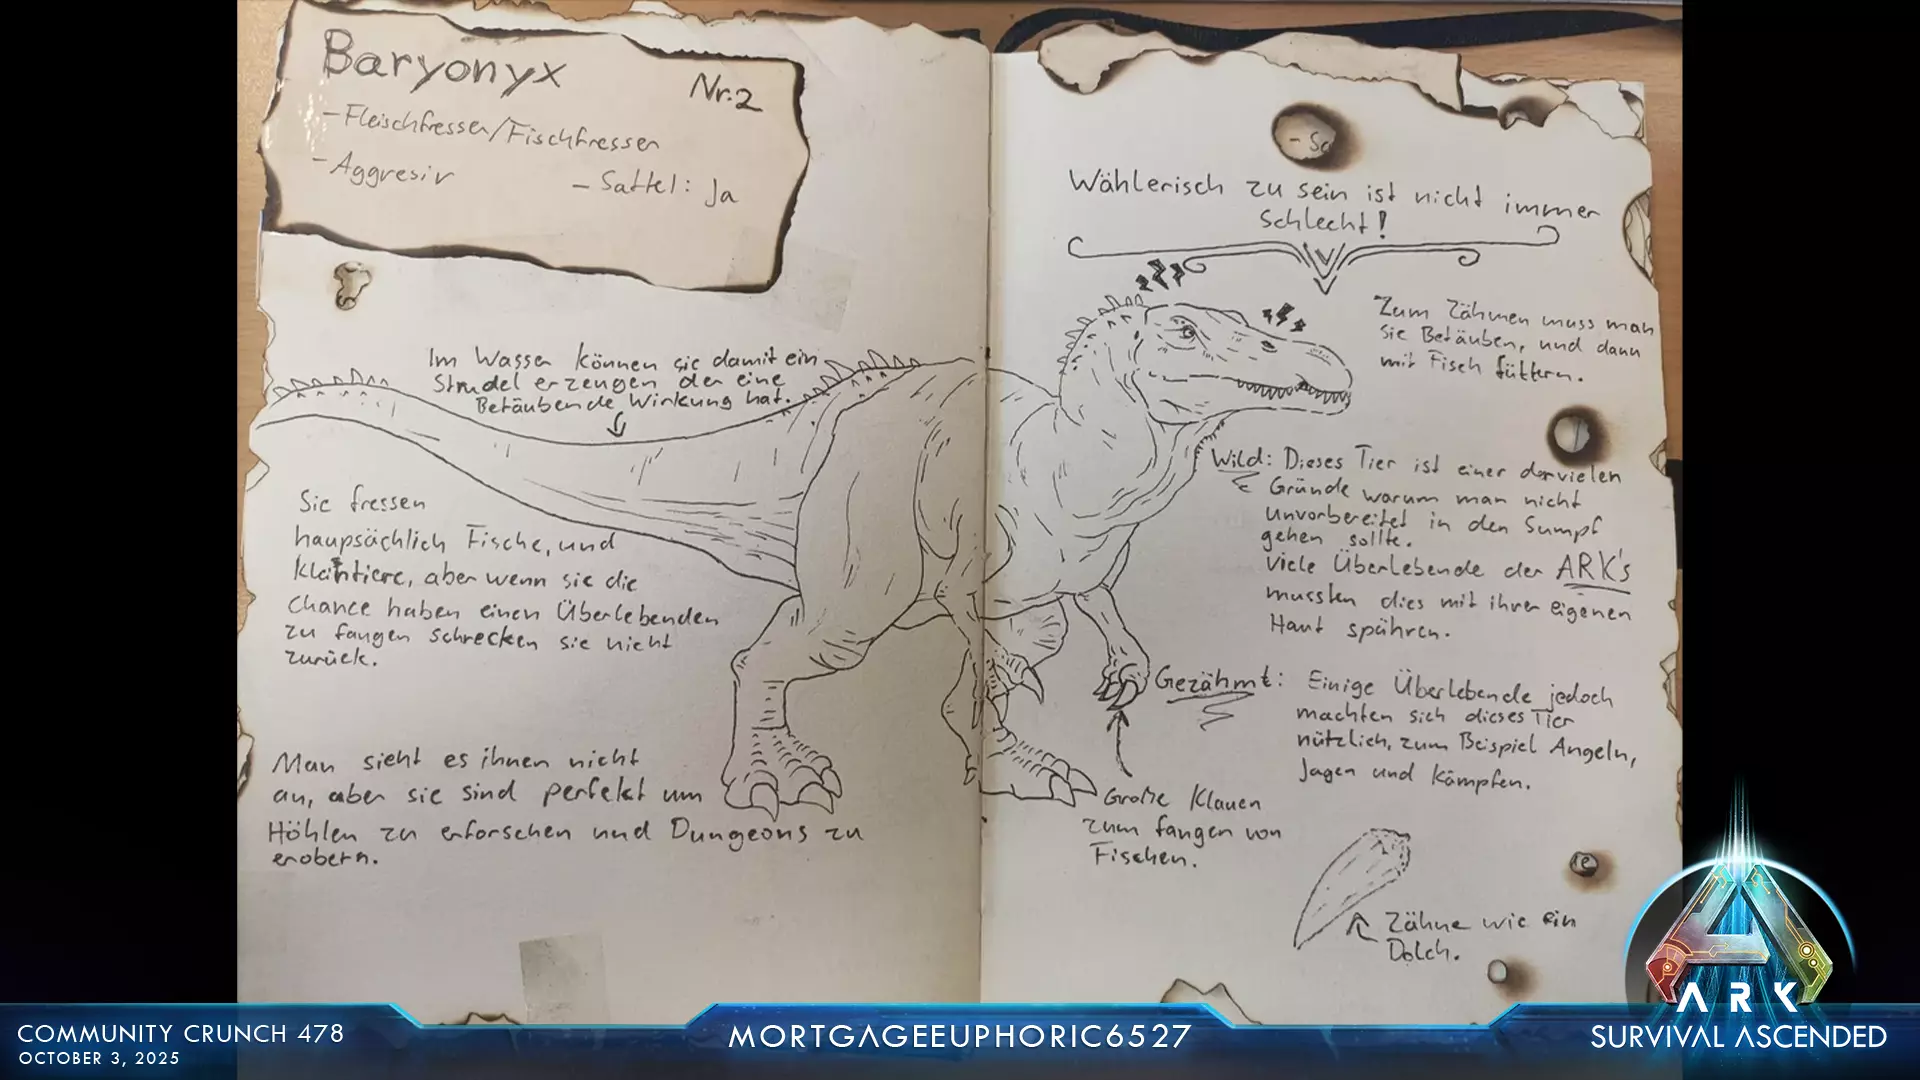 Baryonyx
Nr.2
- Fleischfresser/Fischfresser
- Aggresiv
- Sattel: Ja
Im Wasser können sie damit ein
Strudel erzeugen der eine
Betäubende Wirkung hat.
Sie fressen
haupsächlich Fische, und
Kleintiere, aber wenn sie die
Chance haben einen Überlebenden
zu fangen schrecken sie nicht
zurück.
Man sieht es ihnen nicht
an, aber sie sind perfekt um
Höhlen zu erforschen und Dungeons zu
erobern.
Wählerisch zu sein ist nicht immer
Schlecht!
Zum Zähmen muss man
sie Betäuben, und dann
mit Fisch füttern.
Wild: Dieses Tier ist einer der vielen
Gründe warum man nicht
unvorbereitet in den Sumpf
gehen sollte.
Viele Überlebende der ARK's
mussten dies mit ihrer eigenen
Haut spühren.
Gezähmt: Einige Überlebende jedoch
machten sich dieses Tier
nützlich, zum Beispiel Angeln,
Jagen und Kämpfen.
Große Klauen
zum fangen von
Fischen.
Zähne wie ein
Dolch.
COMMUNITY CRUNCH 478
OCTOBER 3, 2025
MORTGAGEEUPHORIC6527
ARK
SURVIVAL ASCENDED